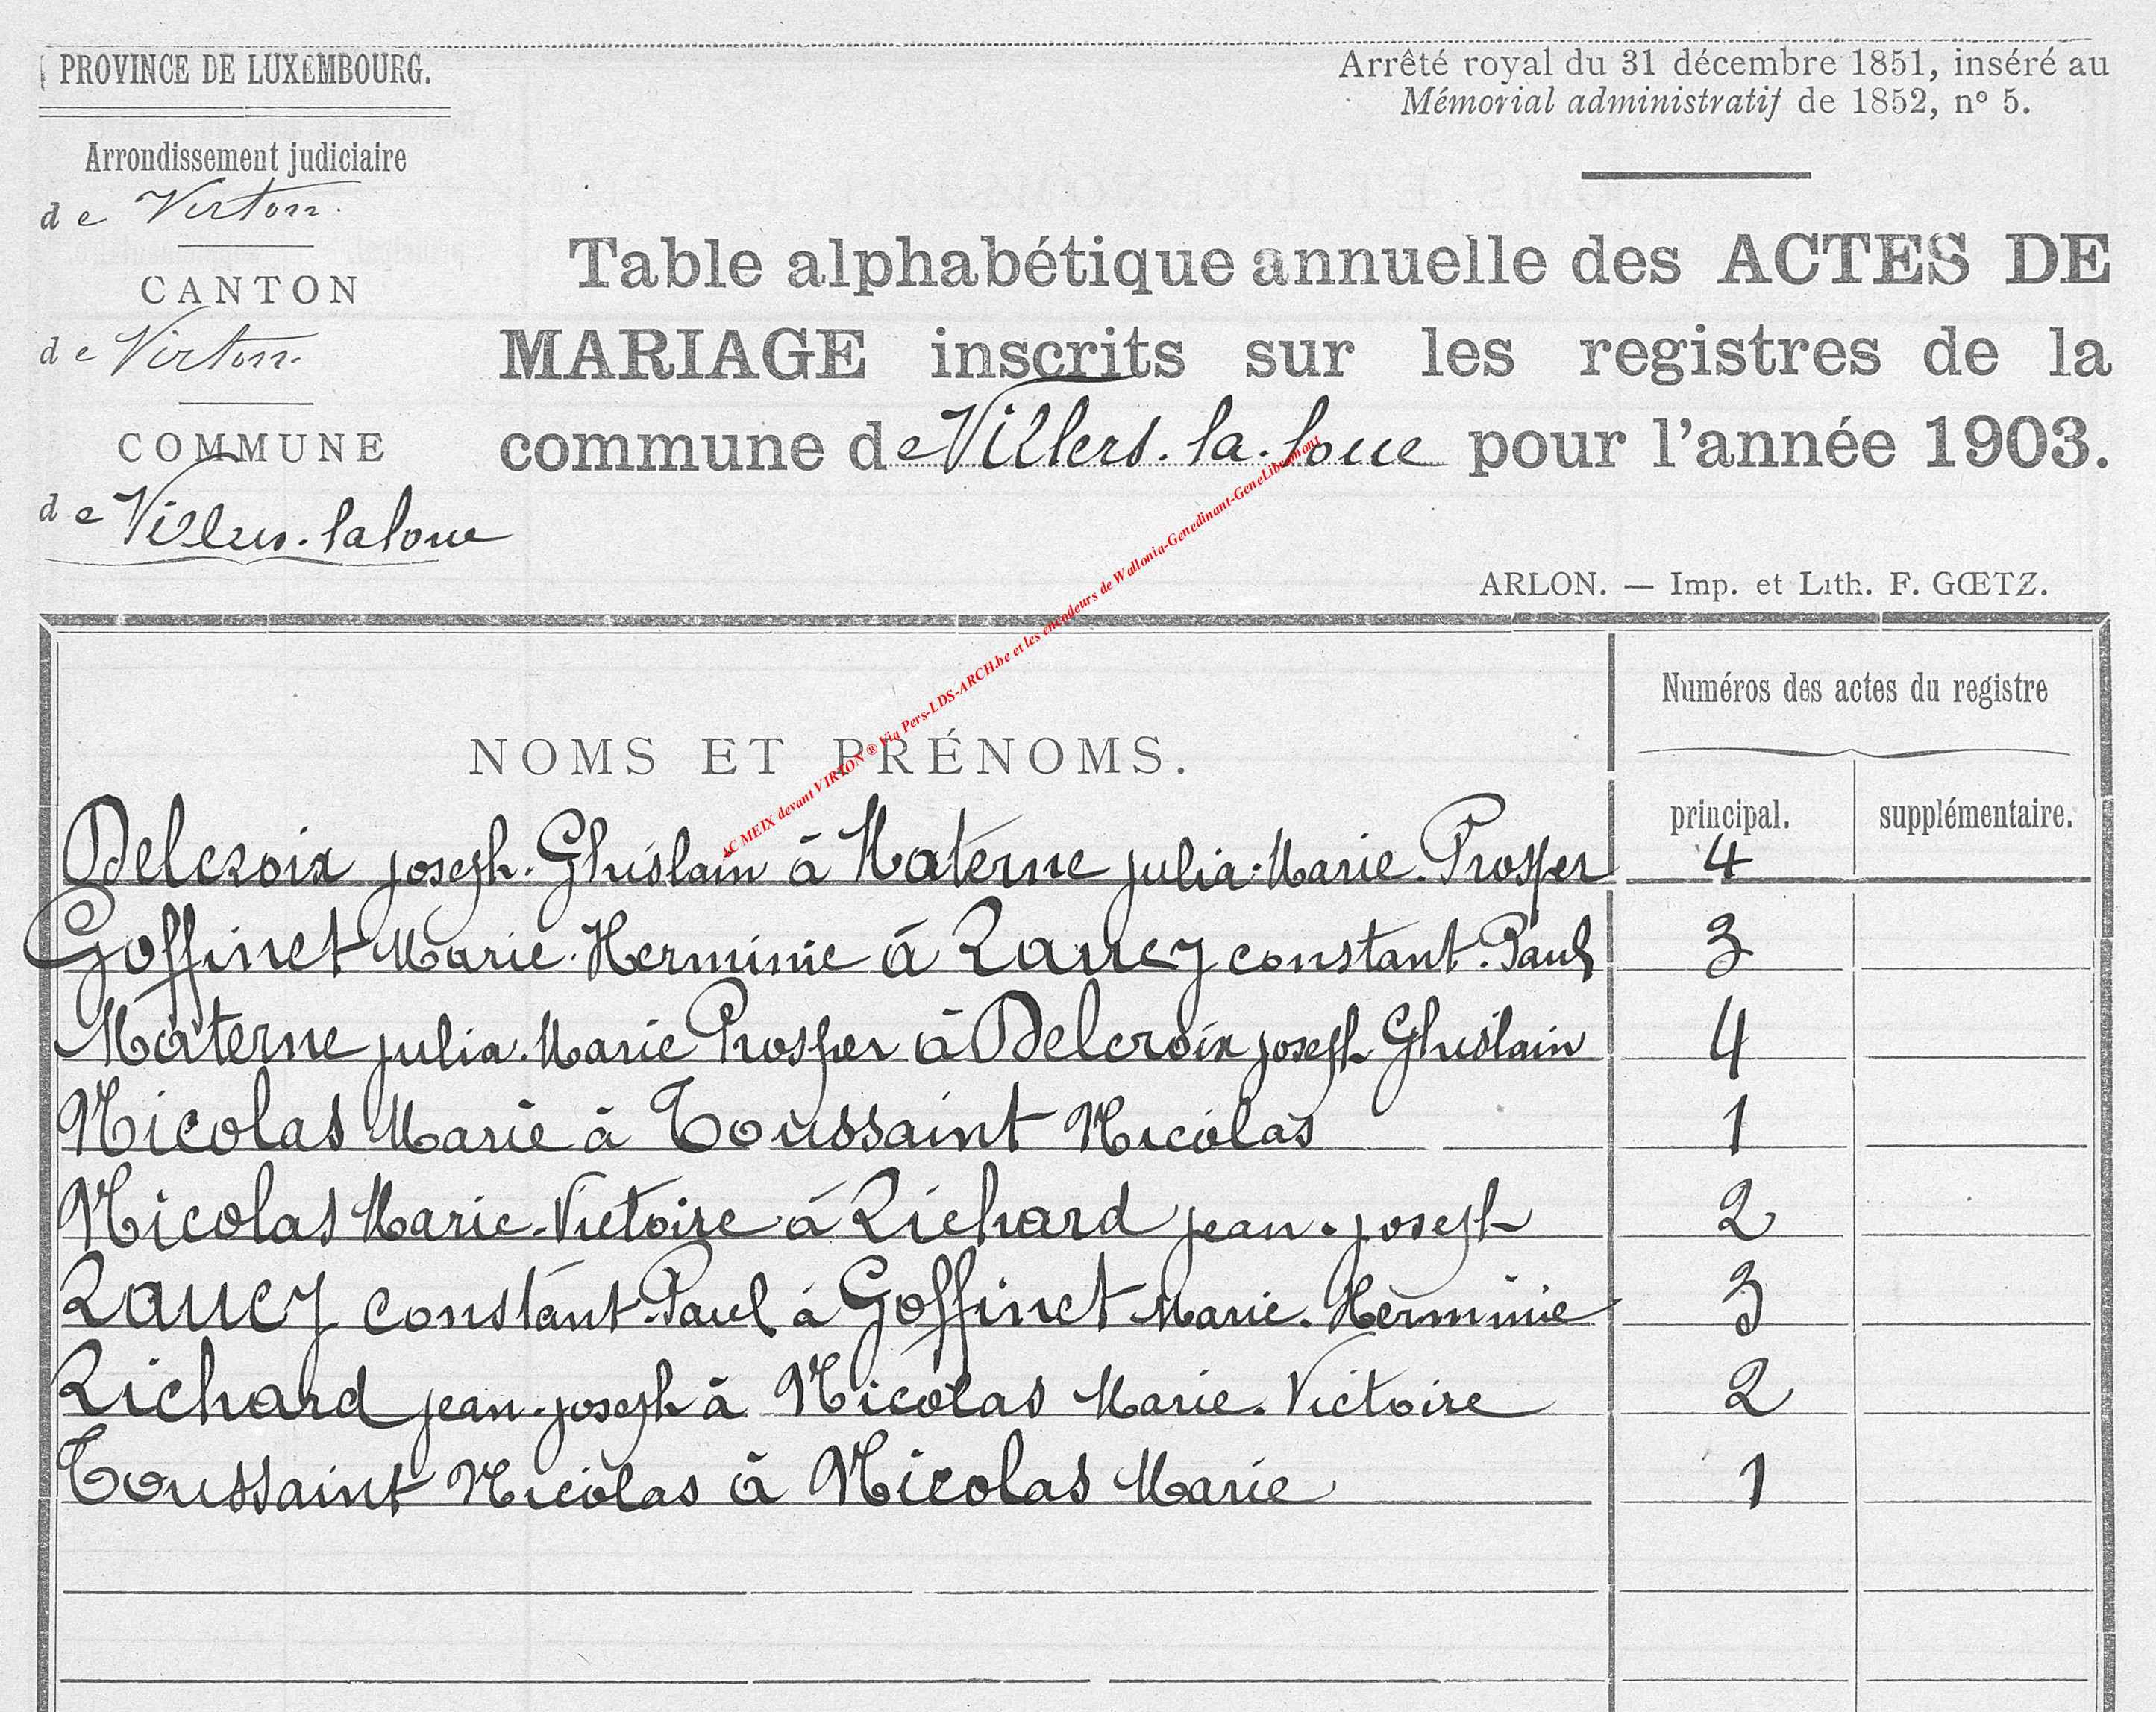 PROVINCE DE LUXEMBOURG.
Arrondissement judiciaire
de Virton.
CANTON
de Virton.
COMMUNE
de Villers-la loue
Arrêté royal du 31 décembre 1851, inséré au
Mémorial administratif de 1852, nº 5.
Table alphabétique annuelle des ACTES DE
MARIAGE inscrits sur les registres de la
commune de Villers-la-loue pour l'année 1903.
ARLON. — Imp. et Lith. F. GŒTZ.
AC MEIX devant VIRTON ® Via Pers-LDS-ARCH.be et les encodeurs de Wallonia-Genedinant-GeneLibramont
NOMS ET PRÉNOMS.
Numéros des actes du registre
principal. supplémentaire.
Delcroix joseph-Ghislain à Materne julia-Marie-Prosper 4
Goffinet Marie-Herminie à Raucy constant-Paul 3
Materne julia-Marie Prosper à Delcroix joseph Ghislain 4
Nicolas Marie à Toussaint Nicolas 1
Nicolas Marie-Victoire à Richard jean-joseph 2
Raucy constant-Paul à Goffinet Marie-Herminie 3
Richard jean-joseph à Nicolas Marie-Victoire 2
Toussaint Nicolas à Nicolas Marie 1